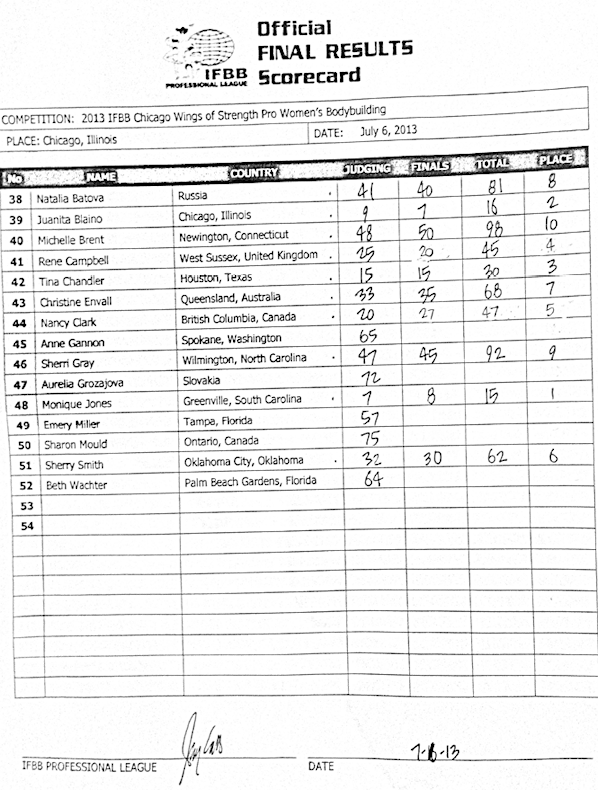 Official
FINAL RESULTS
IFBB Scorecard
PROFESSIONAL LEAGUE
COMPETITION: 2013 IFBB Chicago Wings of Strength Pro Women's Bodybuilding
PLACE: Chicago, Illinois DATE: July 6, 2013
No NAME COUNTRY JUDGING FINALS TOTAL PLACE
38 Natalia Batova Russia 41 40 81 8
39 Juanita Blaino Chicago, Illinois 9 7 16 2
40 Michelle Brent Newington, Connecticut 48 50 98 10
41 Rene Campbell West Sussex, United Kingdom 25 20 45 4
42 Tina Chandler Houston, Texas 15 15 30 3
43 Christine Envall Queensland, Australia 33 35 68 7
44 Nancy Clark British Columbia, Canada 20 27 47 5
45 Anne Gannon Spokane, Washington 65
46 Sherri Gray Wilmington, North Carolina 47 45 92 9
47 Aurelia Grozajova Slovakia 72
48 Monique Jones Greenville, South Carolina 7 8 15 1
49 Emery Miller Tampa, Florida 57
50 Sharon Mould Ontario, Canada 75
51 Sherry Smith Oklahoma City, Oklahoma 32 30 62 6
52 Beth Wachter Palm Beach Gardens, Florida 64
53
54
7-6-13
IFBB PROFESSIONAL LEAGUE DATE